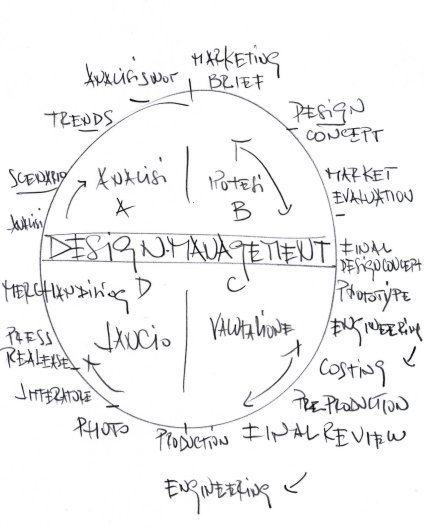 MARKETING
BRIEF
ANALISI SWOT
TRENDS
DESIGN
CONCEPT
SCENARIO
ANALISI
ANALISI
A
IPOTESI
B
MARKET
EVALUATION
DESIGN MANAGEMENT
FINAL
DESIGN CONCEPT
MERCHANDISING
D
C
PROTOTYPE
LANCIO
VALUTAZIONE
ENGINEERING
PRESS
REALEASE
COSTING
LITERATURE
PRE PRODUCTION
PHOTO
PRODUCTION
FINAL REVIEW
ENGINEERING